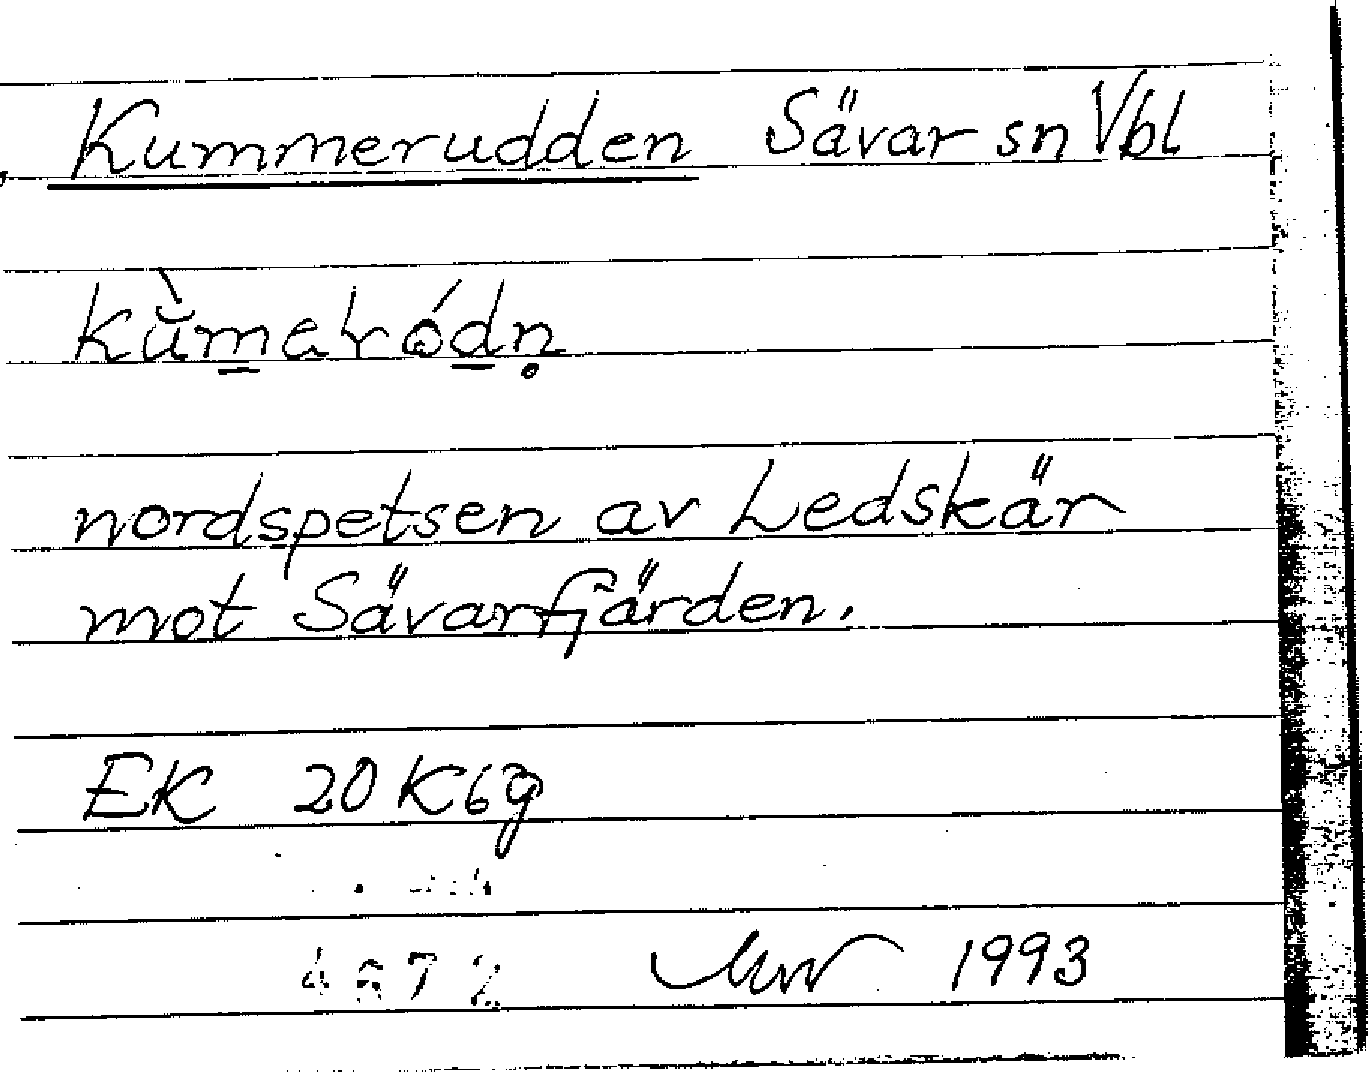 Kummerudden Sävar sn Vbl
nordspetsen av Ledskär
mot Sävarfjärden.
EK 20 K 6g
1993